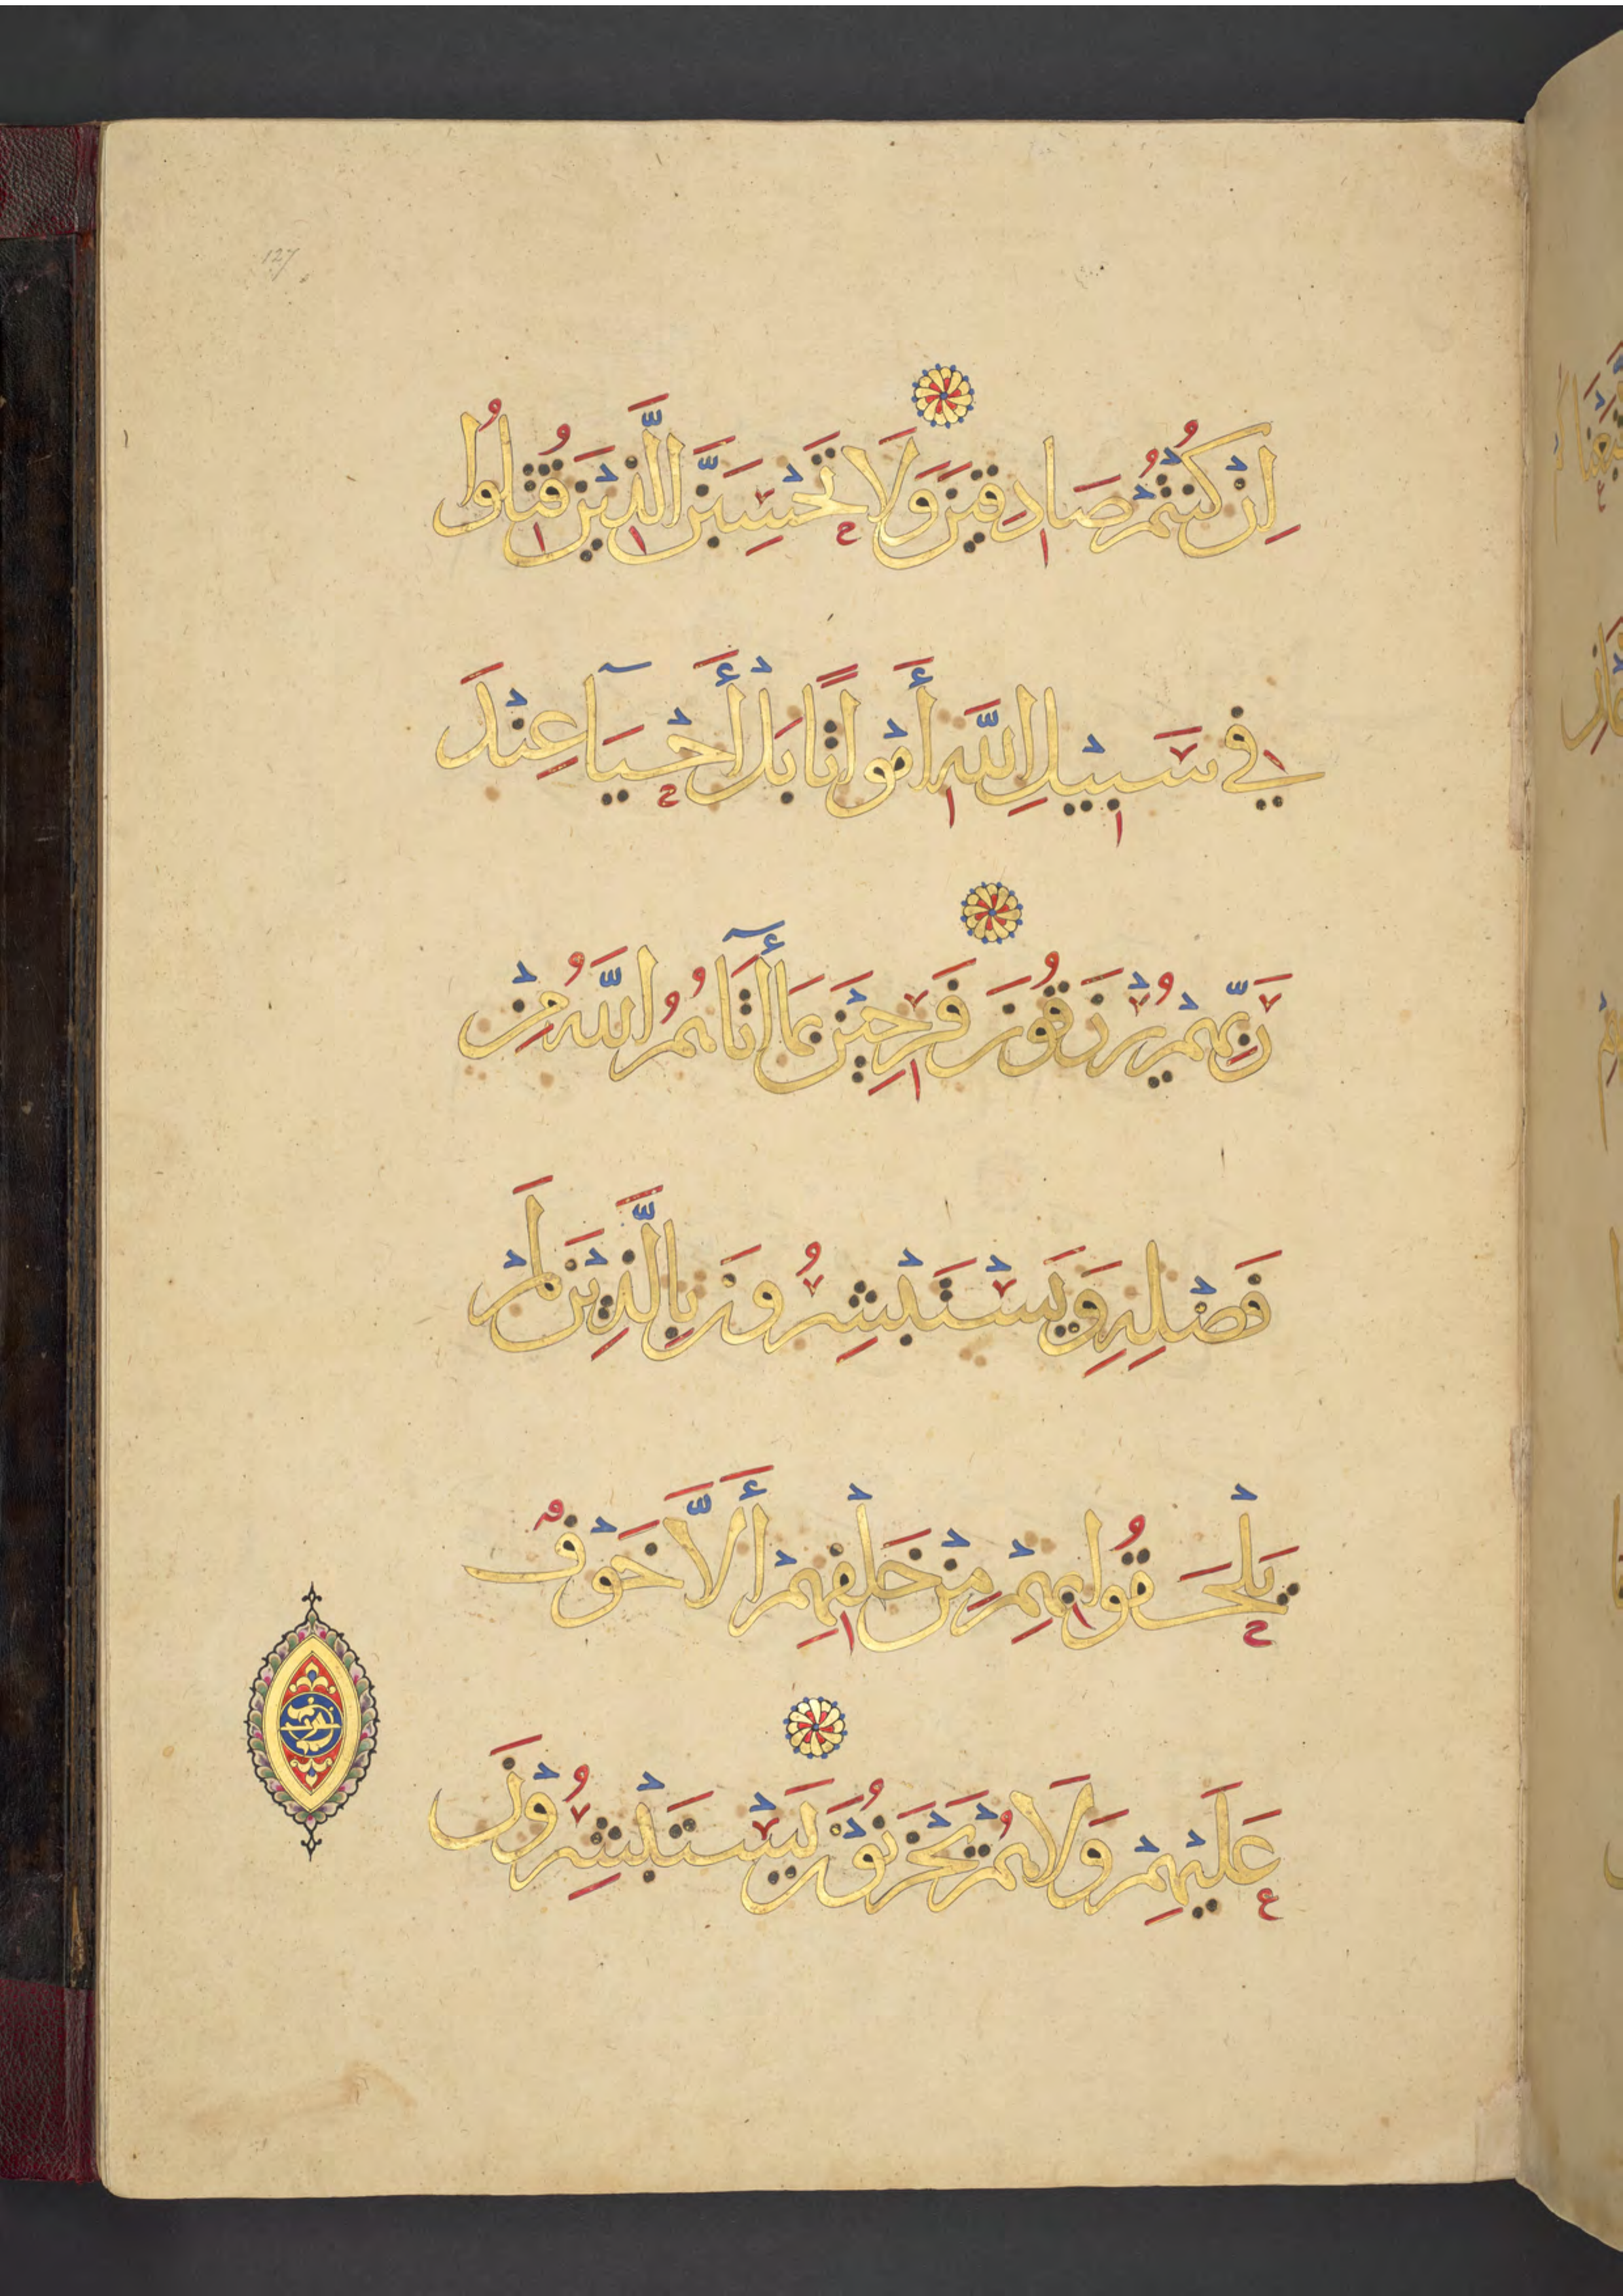 127
اِنْ كُنْتُمْ صَادِقِيْنَ وَلَا تَحْسِبَنَّ الَّذِيْنَ قُتِلُوا
فِي سَبِيْلِ اللَّهِ أَمْوَاتًا بَلْ أَحْيَآ عِنْدَ
رَبِّهِمْ يُرْزَقُوْنَ فَرِحِيْنَ بِمَآ أَتَاهُمُ اللَّهُ مِنْ
فَضْلِهِ وَيَسْتَبْشِرُوْنَ بِالَّذِيْنَ لَمْ
يَلْحَقُوا بِهِمْ مِنْ خَلْفِهِمْ أَلَّا خَوْفٌ
عَلَيْهِمْ وَلَا هُمْ يَحْزَنُوْنَ يَسْتَبْشِرُوْنَ